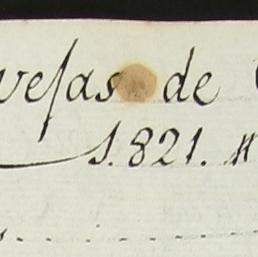 vejas de
1.821.